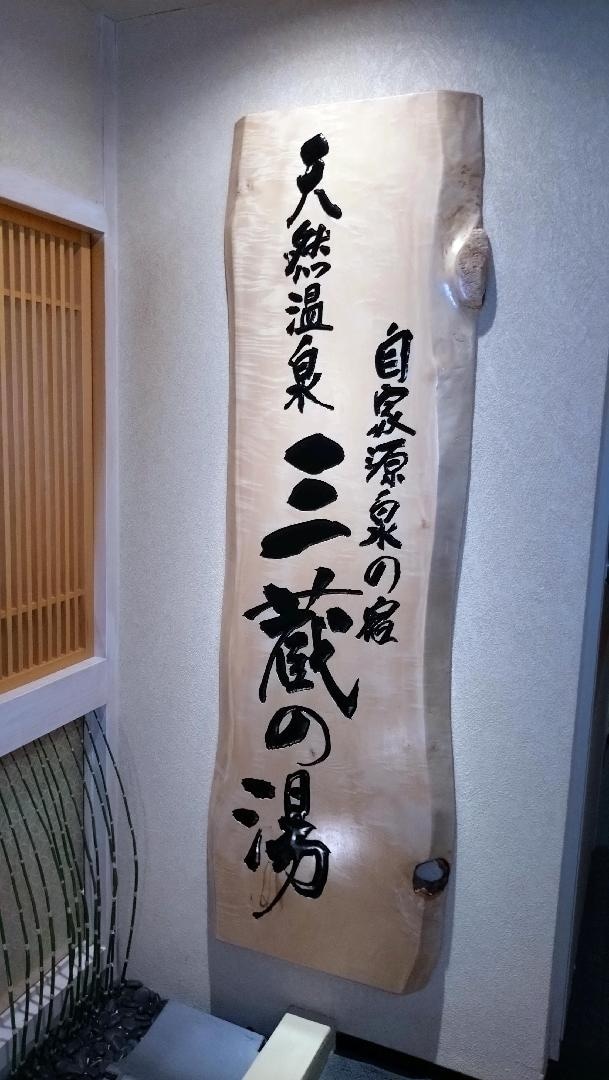 自家源泉の宿
天然温泉
三蔵の湯